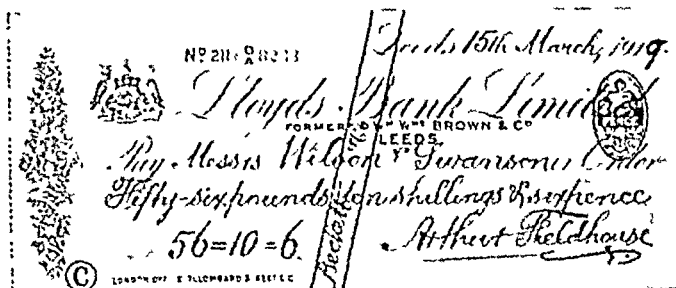 Leeds 15th March, 1919.
Lloyds Bank Limited
FORMERLY Wm WM BROWN & Co
LEEDS.
Pay Messrs Wilson & Swanson or Order
Fifty-six pounds ten shillings & sixpence
56=10=6.
Arthur Fieldhouse
©